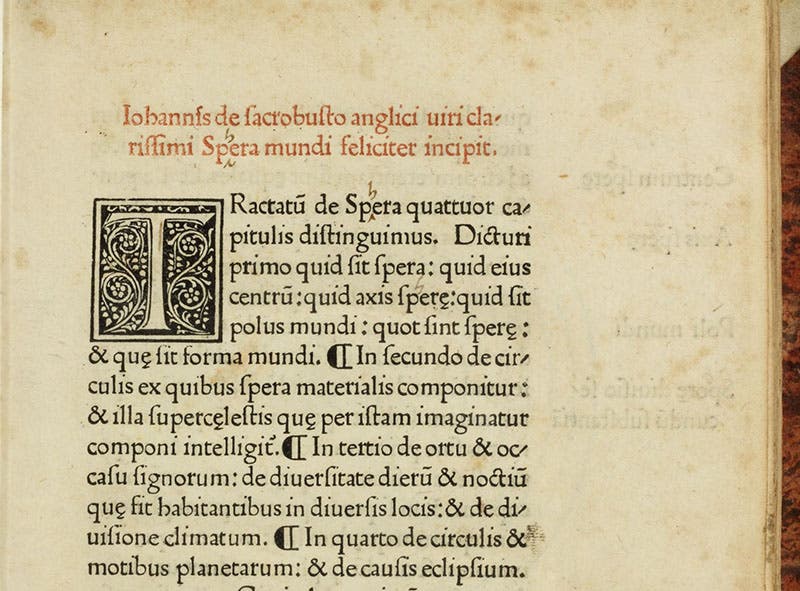 Iohannſs de ſacrobuſto anglici uiri cla-
riſſimi Spera mundi feliciter incipit.
TRactatū de Spera quattuor ca-
pitulis diſtinguimus. Dicturi
primo quid ſit ſpera: quid eius
centrū: quid axis ſperę: quid ſit
polus mundi: quot ſint ſperę:
& quę ſit forma mundi. ¶ In ſecundo de cir-
culis ex quibus ſpera materialis componitur:
& illa ſupercęleſtis quę per iſtam imaginatur
componi intelligit᷑. ¶ In tertio de ortu & oc-
caſu ſignorum: de diuerſitate dierū & noctiū
quę fit habitantibus in diuerſis locis: & de di-
uiſione climatum. ¶ In quarto de circulis &
motibus planetarum: & de cauſis eclipſium.